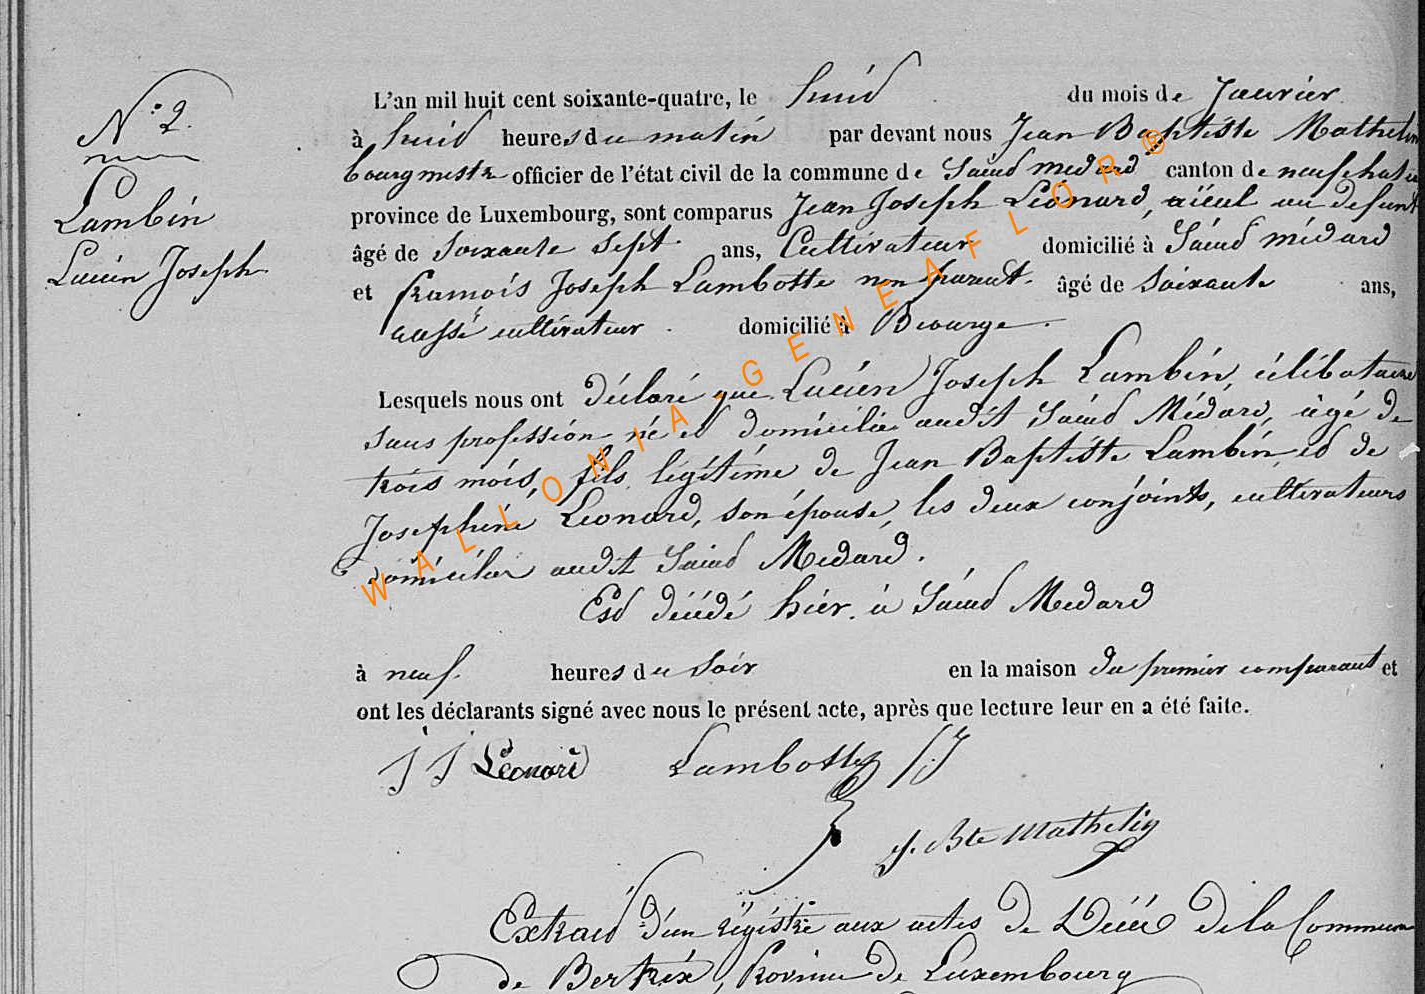 N° 2.
Lambin
Lucien Joseph
L'an mil huit cent soixante-quatre, le huit du mois de Janvier
à huit heures du matin par devant nous Jean Baptiste Mathelin
bourgmestre officier de l'état civil de la commune de Saint Médard canton de neufchateau
province de Luxembourg, sont comparus Jean Joseph Léonard, aïeul au defunt
âgé de Soixante sept ans, Cultivateur domicilié à Saint médard
et François Joseph Lambotte non parent. âgé de Soixante ans,
aussi cultivateur domicilié à Biourge.
Lesquels nous ont déclaré que Lucien Joseph Lambin, célibataire
sans profession né et domicilié audit Saint Médard, âgé de
trois mois, fils légitime de Jean Baptiste Lambin et de
Josephine Leonard, son épouse, les deux conjoints, cultivateurs
domiciliés audit Saint Medard.
Est décédé hier à Saint Medard
à neuf heures du soir en la maison du premier comparant et
ont les déclarants signé avec nous le présent acte, après que lecture leur en a été faite.
J J Léonard Lambotte f. J
J. Bte Mathelin
Extrait d'un régistre aux actes de Décès de la Commune
de Bertrix, Province de Luxembourg
WALLONIA-GENEAFLOR®